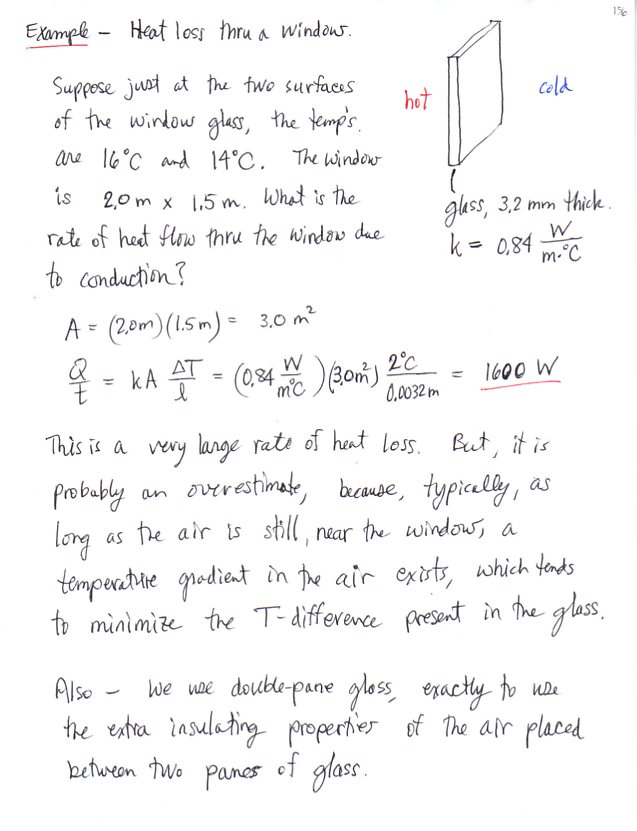 156
Example – Heat loss thru a window.
Suppose just at the two surfaces
of the window glass, the temp's.
are 16°C and 14°C. The window
is 2.0 m x 1.5 m. What is the
rate of heat flow thru the window due
to conduction?
hot
cold
glass, 3.2 mm thick.
k = 0.84 W/m·°C
A = (2.0m)(1.5m) = 3.0 m²
Q/t = kA ΔT/l = (0.84 W/m°C)(3.0m²) 2°C/0.0032m = 1600 W
This is a very large rate of heat loss. But, it is
probably an overestimate, because, typically, as
long as the air is still, near the window, a
temperature gradient in the air exists, which tends
to minimize the T-difference present in the glass.
Also – We use double-pane glass, exactly to use
the extra insulating properties of the air placed
between two panes of glass.